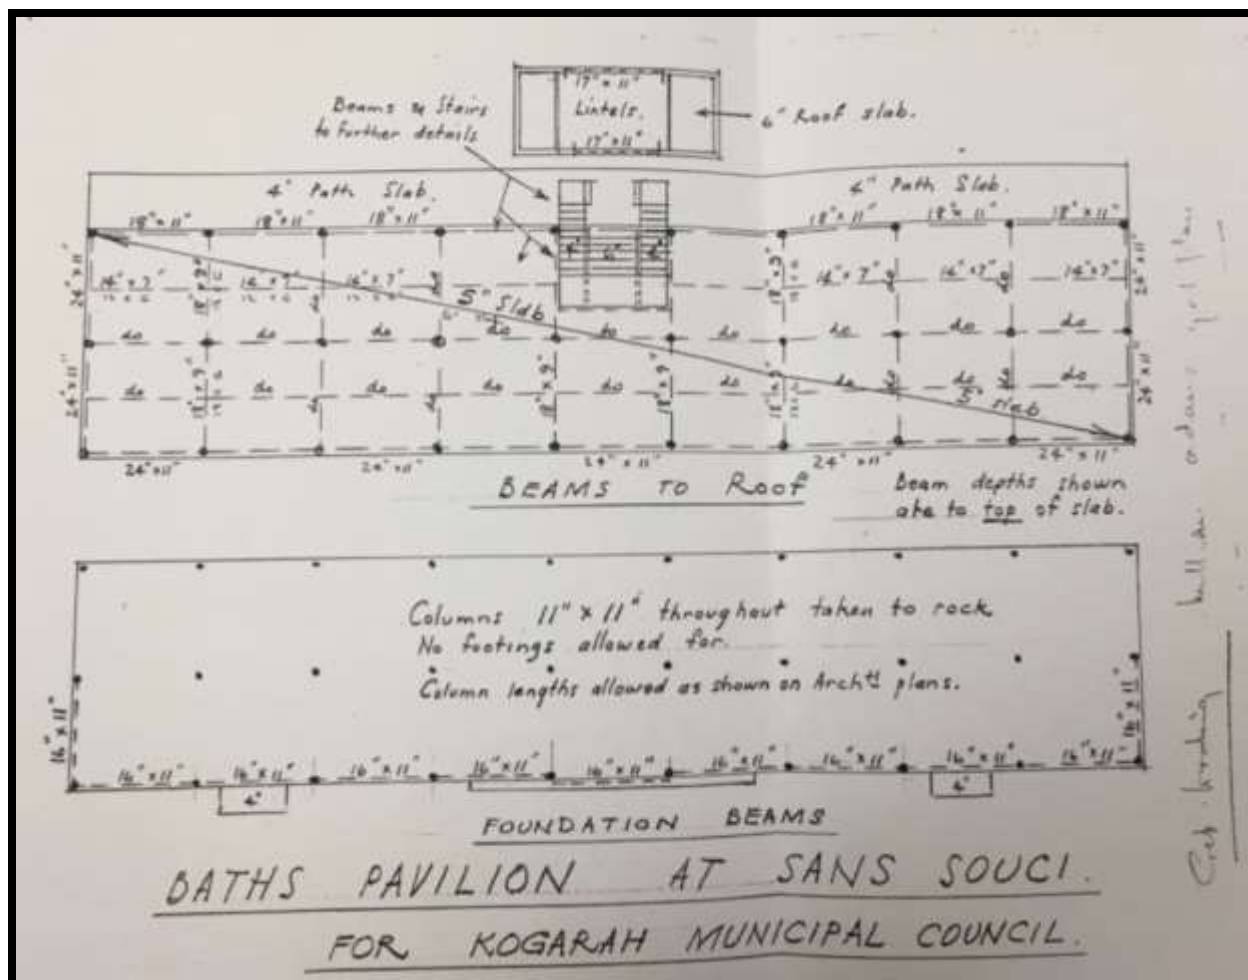 17" x 11"
Lintels.
17" x 11"
6" Roof slab.
Beams & Stairs
to further details
4" Path Slab.
4" Path Slab.
18" x 11" 18" x 11" 18" x 11" 18" x 11" 18" x 11" 18" x 11"
24" x 11" 14" x 7" 18" x 9" 14" x 7" 14" x 7" do 4" 6" 4" 18" x 9" 14" x 7" do 14" x 7" do 14" x 7" 24" x 11"
5" Slab
do do do do do do do do do
24" x 11" do 18" x 9" do do do do do 18" x 9" do 18" x 9" do 18" x 9" do do do do do 24" x 11"
5" slab
24" x 11" 24" x 11" 24" x 11" 24" x 11" 24" x 11"
BEAMS TO ROOF
Beam depths shown
are to top of slab.
Columns 11" x 11" throughout taken to rock
No footings allowed for.
Column lengths allowed as shown on Archtl plans.
16" x 11" 16" x 11"
16" x 11" 16" x 11" 16" x 11" 16" x 11" 16" x 11" 16" x 11" 16" x 11" 16" x 11" 16" x 11"
4" 4"
FOUNDATION BEAMS
BATHS PAVILION AT SANS SOUCI.
FOR KOGARAH MUNICIPAL COUNCIL.